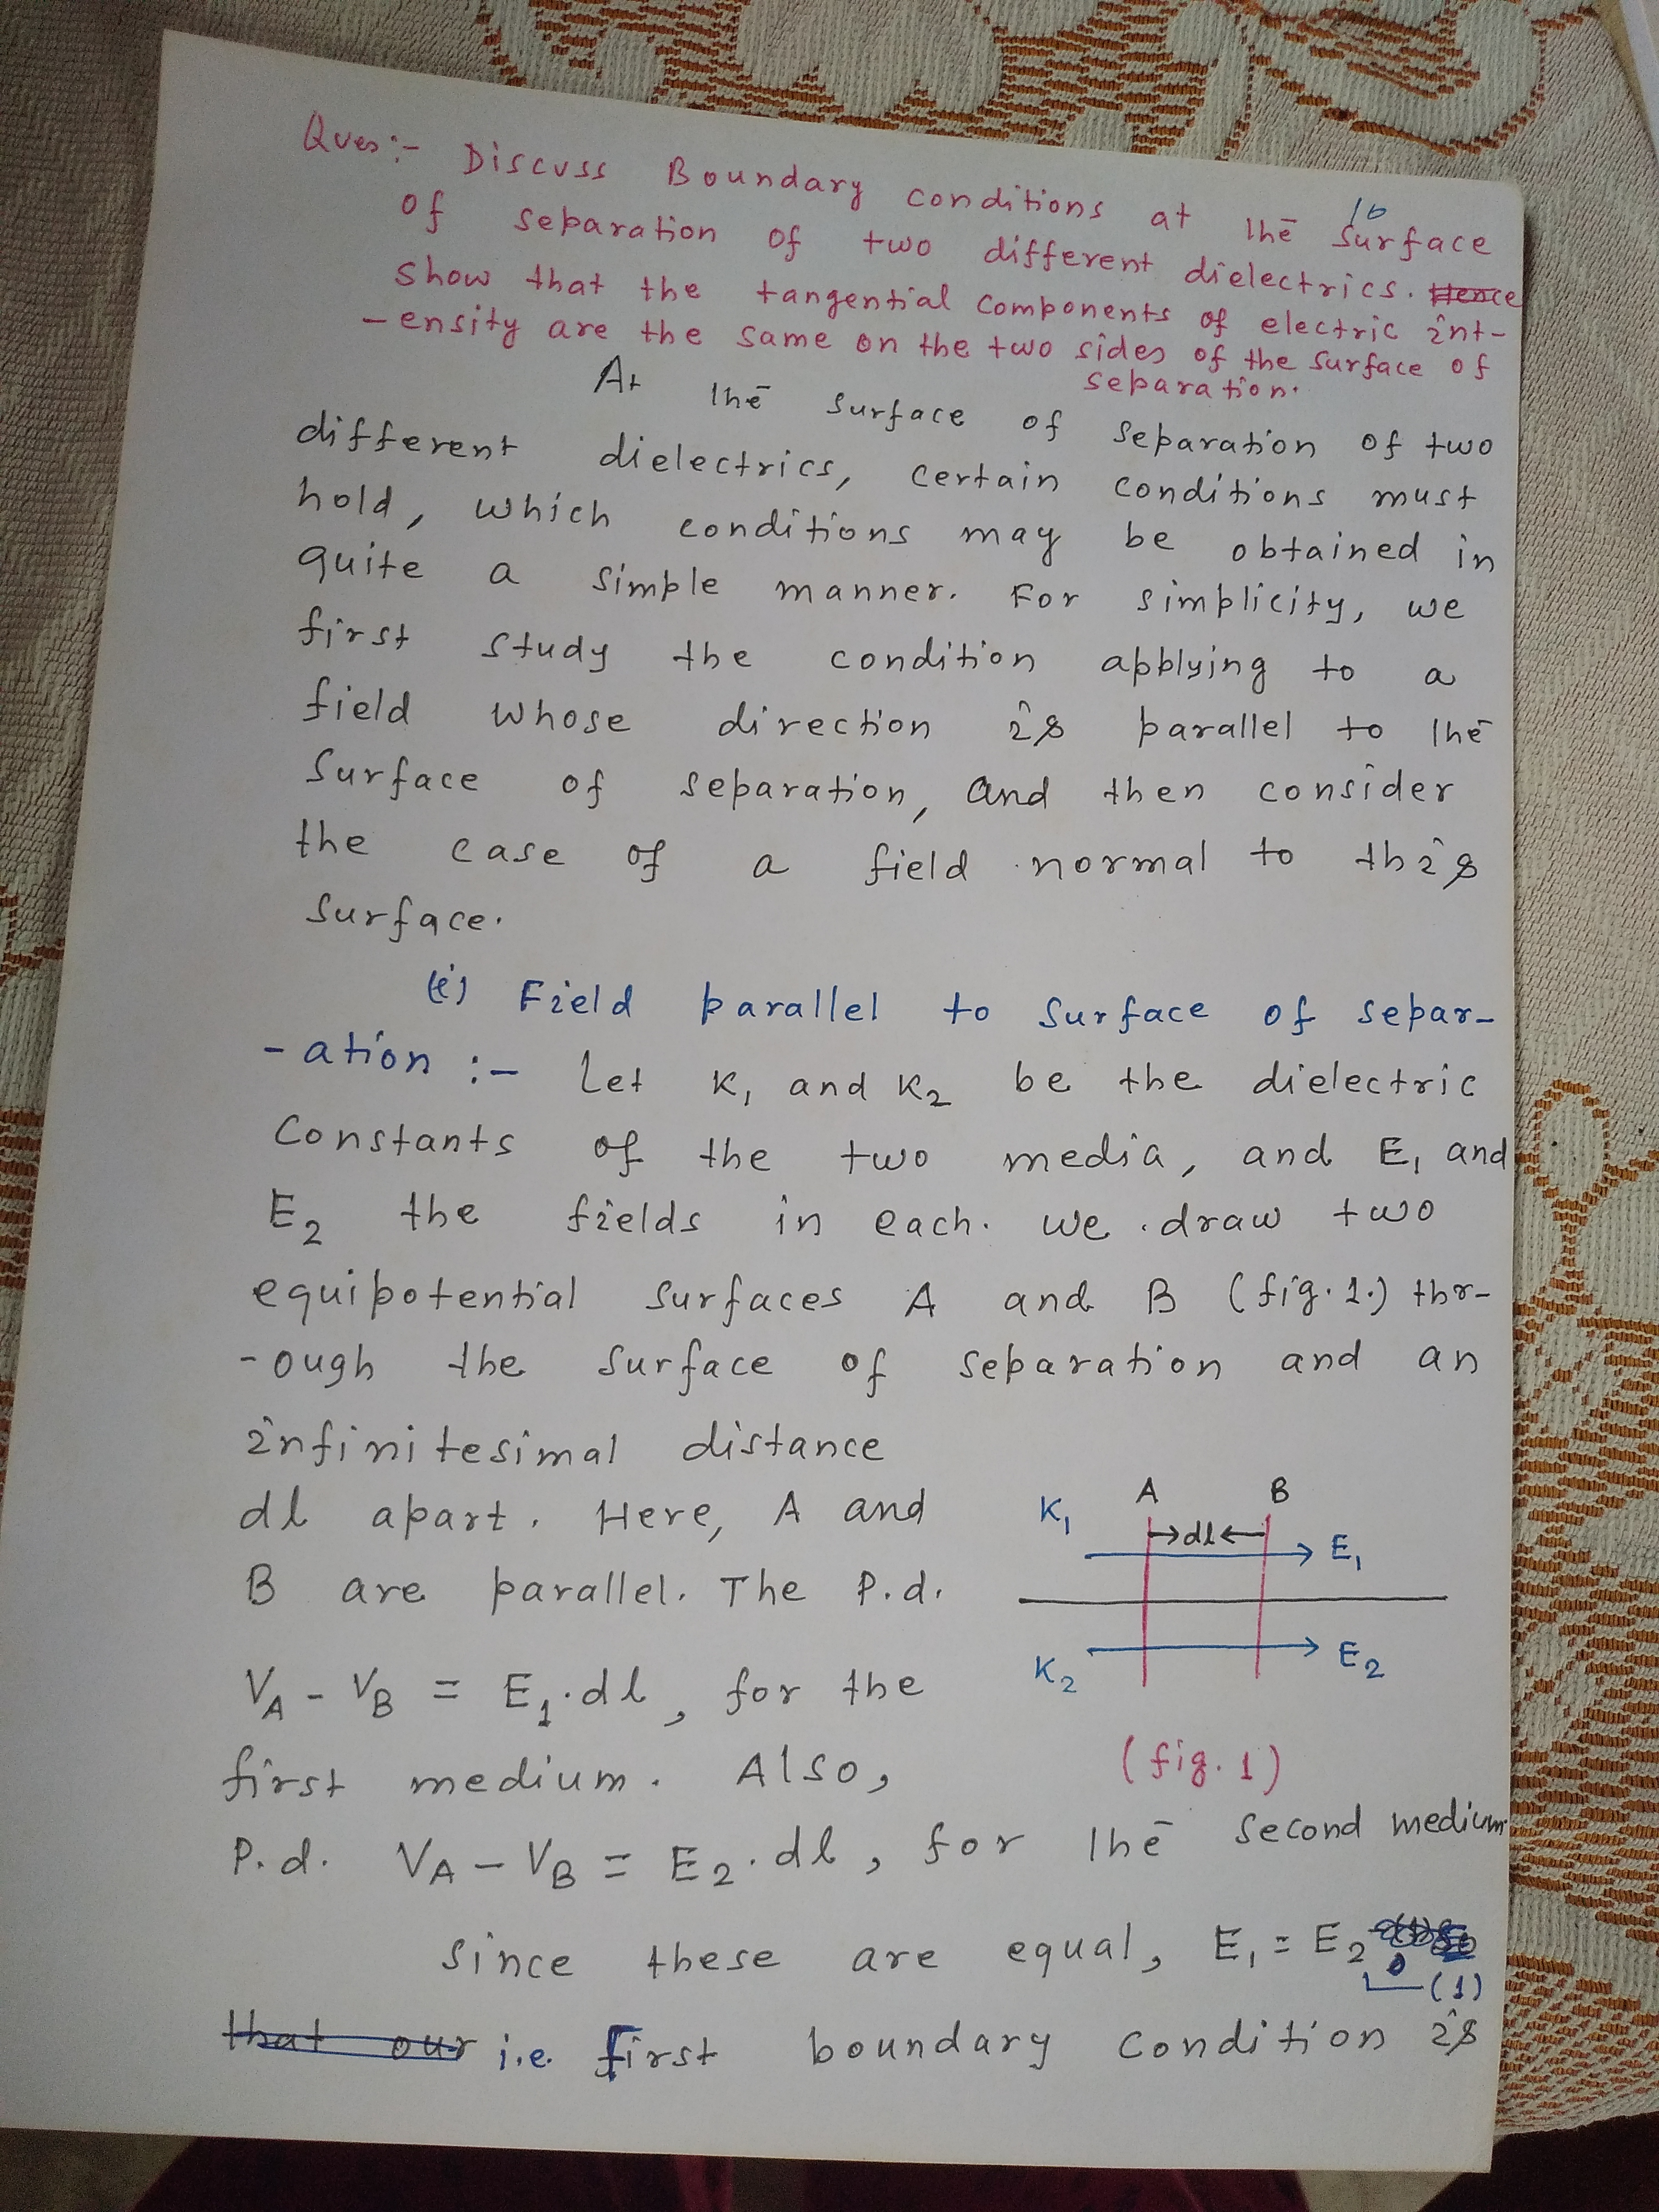 Ques:- Discuss Boundary conditions at the surface
16
of separation of two different dielectrics. Hence
show that the tangential components of electric int-
-ensity are the same on the two sides of the surface of
separation.
At the surface of separation of two
different dielectrics, certain conditions must
hold, which conditions may be obtained in
quite a simple manner. For simplicity, we
first study the condition applying to a
field whose direction is parallel to the
surface of separation, and then consider
the case of a field normal to this
surface.
(i) Field parallel to surface of separ-
-ation :- Let K₁ and K₂ be the dielectric
constants of the two media, and E₁ and
E₂ the fields in each. we draw two
equipotential surfaces A and B (fig. 1.) thr-
-ough the surface of separation and an
infinitesimal distance
dl apart. Here, A and
B are parallel. The P.d.
V_A - V_B = E₁.dl, for the
first medium. Also,
A B
K₁ dl E₁
K₂ E₂
(fig. 1)
P.d. V_A - V_B = E₂.dl, for the second medium
since these are equal, E₁ = E₂
(1)
that our i.e. First boundary condition is